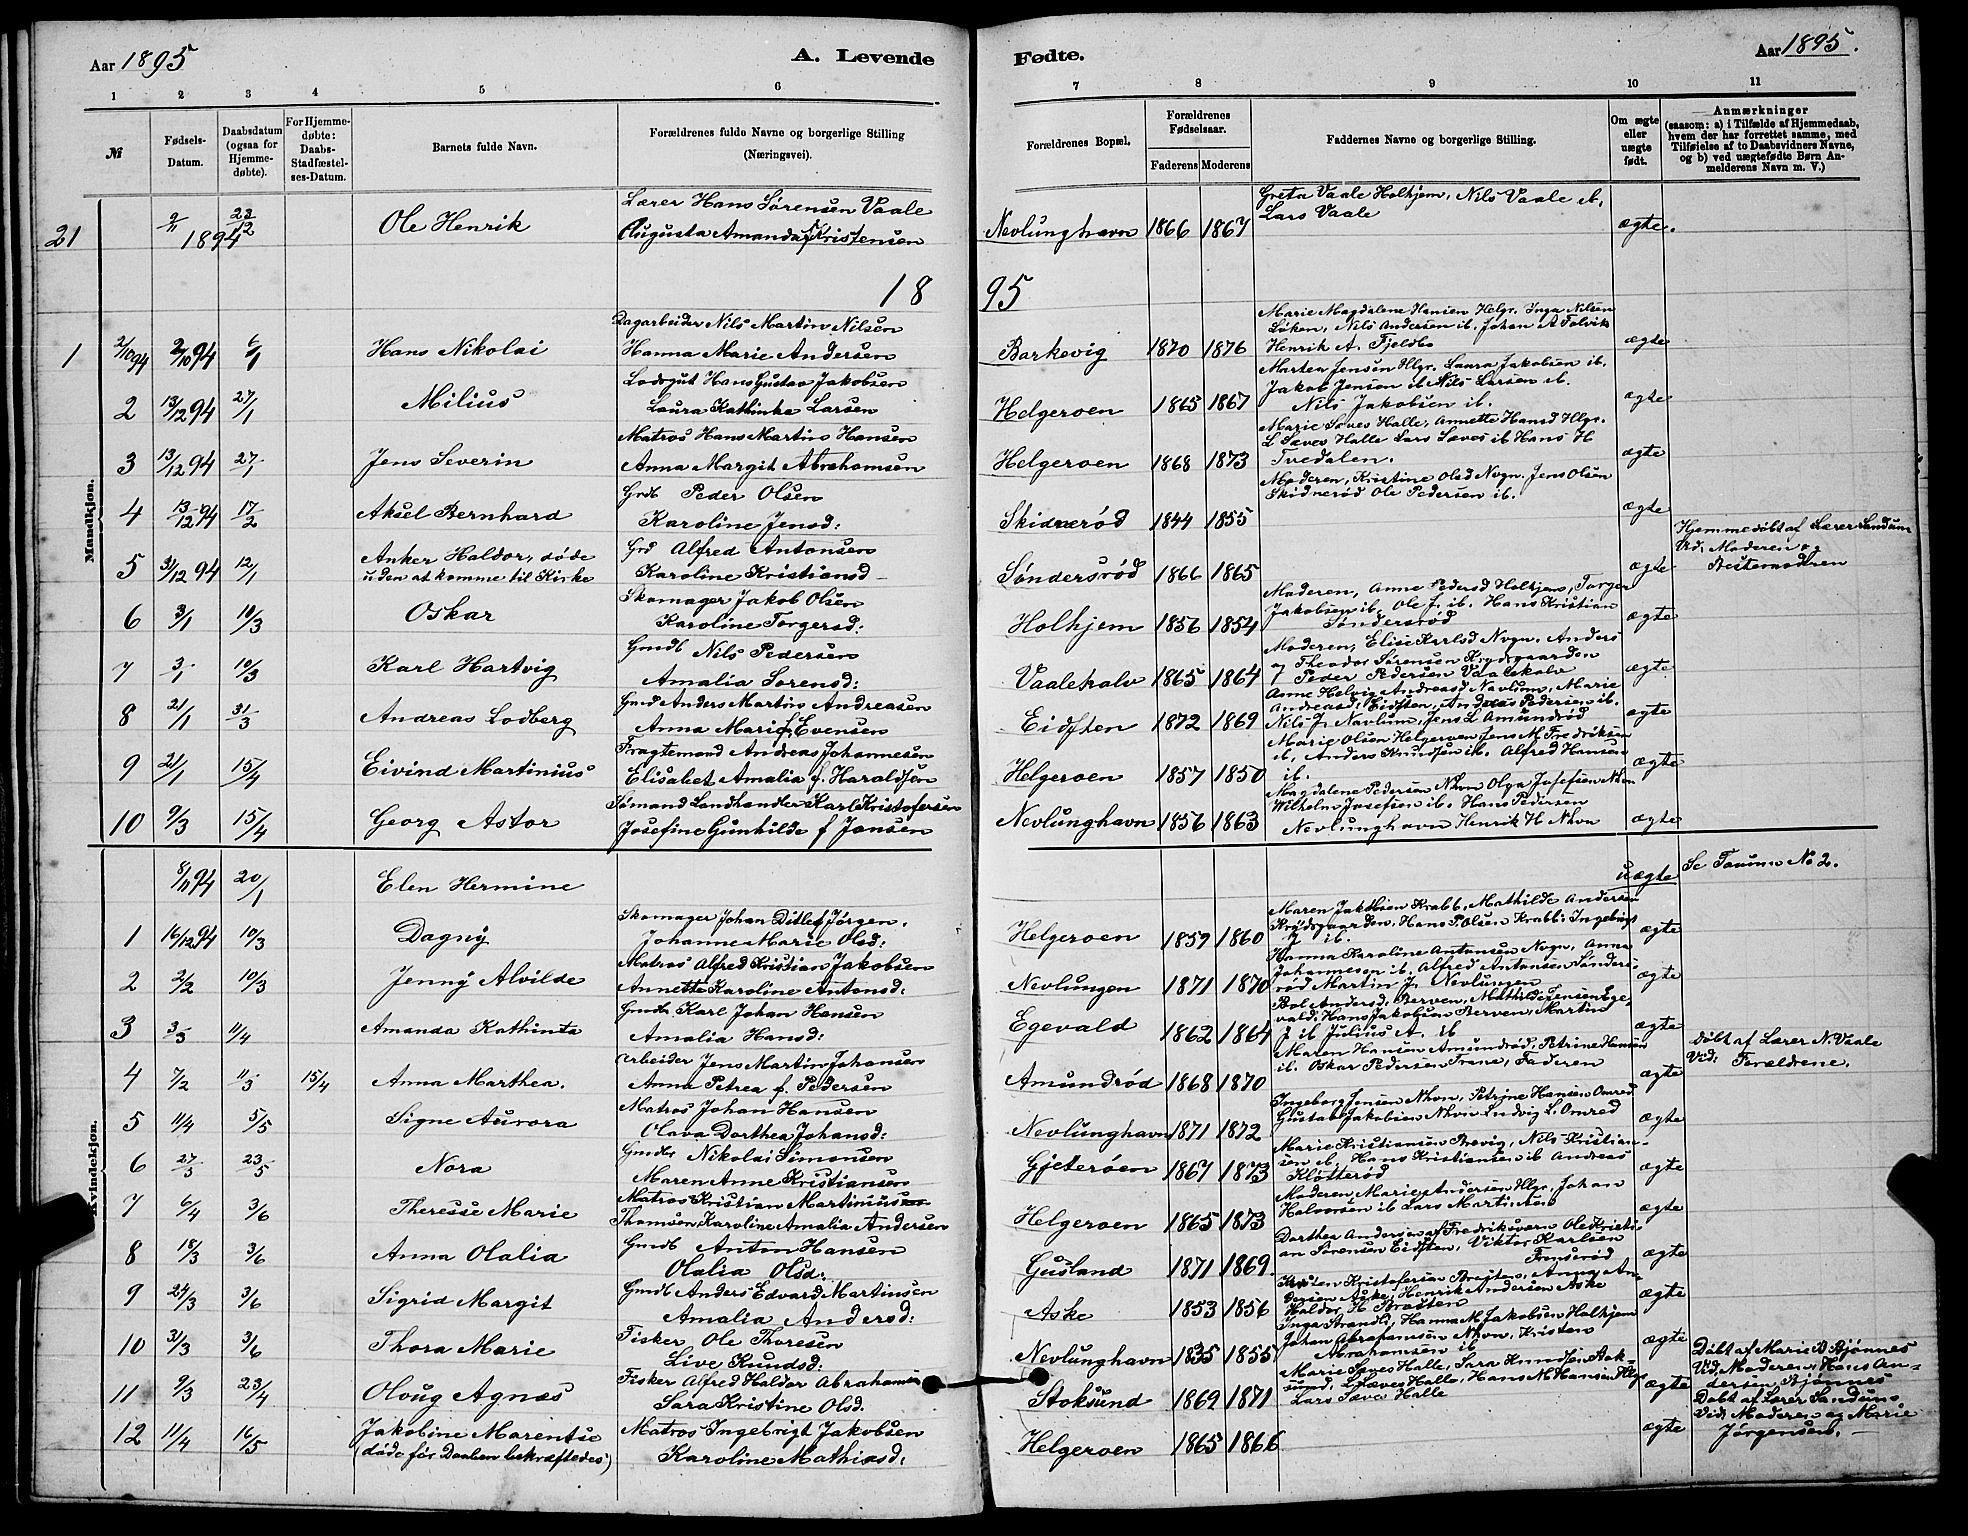 Aar 1895
A. Levende
Fødte.
Aar 1895.
1 2 3 4 5 6 7 8 9 10 11
№
Fødsels-Datum.
Daabsdatum (ogsaa for Hjemme-døbte).
For Hjemme-døbte: Daabs-Stadfæstel-ses-Datum.
Barnets fulde Navn.
Forældrenes fulde Navne og borgerlige Stilling (Næringsvei).
Forældrenes Bopæl.
Forældrenes Fødselsaar.
Faderens Moderens
Faddernes Navne og borgerlige Stilling.
Om ægte eller uægte født.
Anmærkninger
(saasom: a) i Tilfælde af Hjemmedaab, hvem der har forrettet samme, med Tilføielse af to Daabsvidners Navne, og b) ved uægtefødte Børn An-melderens Navn m. V.)
Lærer Hans Sørensen Vaale
Greta Vaale Holhjem, Nils Vaale ib,
21 2/11 1894 23/12 Ole Henrik Augusta Amanda f Kristensen Nevlunghavn 1866 1867 Lars Vaale ægte.
1895
Mandkjøn.
Dagarbeider Nils Martin Nilsen
Marie Magdalene Hansen Helgr. Inga Nilsen
Løken, Nils Andersen ib. Johan A Folvik
1 2/10 94 2/10 94 6/1 Hans Nikolai Hanna Marie Andersen Barkevig 1870 1876 Henrik A. Fjeldbo ægte
Lodsgut Hans Gustav Jakobsen
Martea Jensen Hlgr. Laura Jakobsen ib.
Jakob Jenson ib Nils Larsen ib.
2 13/12 94 27/1 Milius Laura Kathinka Larsen Helgeroen 1865 1867 Nils Jakobsen ib. ægte
Matros Hans Martin Hansen
Marie Sæves Halle, Annette Hansd Hlgr.
L Sæves Halle Lars Sæves ib Hans H
3 13/12 94 27/1 Jens Severin Anna Margit Abrahamsen Helgeroen 1868 1873 Tvedalen. ægte
Grdb Peder Olsen
Moderen, Kristine Olsd Nvgn. Jens Olsen
Skidnerød Ole Pedersen ib.
4 13/12 94 17/2 Aksel Bernhard Karoline Jensd: Skidnerød 1844 1855 ægte
Anker Haldor, døde Grd Alfred Antonsen
Hjemmedøbt af Lærer Sandum
Vid. Moderen og
5 31/12 94 12/1 uden at komme til Kirke Karoline Kristiansd Søndersrød 1866 1865 ægte Bestemoderen
Skomager Jakob Olsen
Moderen, Anne Pedersd Holhjem, Torger
Jakobsen ib. Ole J. ib. Hans Kristian
6 3/1 10/3 Oskar Karoline Torgersd: Holhjem 1856 1854 Søndersrød ægte
Gmdb Nils Pedersen
Moderen, Elise Karlsd Nvgn. Anders
og Theodor Sørensen Krydsgaarden
7 3/1 10/3 Karl Hartvig Amalia Sørensd: Vaalekalv 1865 1864 Peder Pedersen Vaalekalv ægte
Gmd Anders Martin Andreasen
Anne Helvig Andreasd Navlum, Marie
Andreasd, Eidsten, Andreas Pedersen ib.
8 21/1 31/3 Andreas Lodberg Anna Marie f Evensen Eidsten 1872 1869 Nils J. Navlum, Jens L Amundrød ægte
Fragtemand Andreas Johannesen
Marie Olsen Helgeroen Jens M. Fredriksen
ib, Anders Knudsen ib. Alfred Hansen
9 21/1 15/4 Eivind Martinius Elisabet Amalia f. Haraldsen Helgeroen 1857 1850 ib. ægte
Sømand Landhandler Karl Kristofersen
Magdalene Pedersen Nhvn Olga Josefsen Nhvn
Wilhelm Josefsen ib. Hans Pedersen
10 9/3 15/4 Georg Astor Josefine Gunhilde f Jansen Nevlunghavn 1856 1863 Nevlunghavn Henrik H Nhvn ægte
Kvindekjøn.
8/11 94 20/1 Elen Hermine uægte Se Taum No 2.
Skomager Johan Ditlef Jørgen.
Maren Jakobsen Krabb, Mathilde Andersen
Brødsgaarden, Hans P. Olsen Krabb: Ingeborg
1 16/12 94 10/3 Dagny Johanne Marie Olsd: Helgeroen 1859 1860 J ib. ægte
Matros Alfred Kristian Jakobsen
Hanna Karoline Antonsen Nvgn, Anna
Johannesen ib. Alfred Antonsen Sønders-
2 2/2 10/3 Jenny Alvilde Annette Karoline Antonsd: Nevlungen 1871 1870 rød Martin J. Nevlungen ægte
Gmdb Karl Johan Hansen
Bol Andersd, Berven, Mathilde Jensen Ege-
vald, Hans Jakobsen Berven, Martin
3 3/3 11/4 Amanda Kathinta Amalia Hansd: Egevald 1862 1864 J ib Julius A. ib ægte
Arbeider Jens Martin Johansen
Maren Hansen Amundrød, Petrine Hansen
ib. Oskar Pedersen Trane, Faderen
Døbt af Lærer N. Vaale
Vid: Forældrene.
4 7/2 11/3 15/4 Anna Marthea. Anna Petrea f. Pedersen Amundrød 1868 1870 ægte
Matros Johan Hansen
Ingeborg Jensen Nhvn, Petrine Hansen Omred
Gustav Jakobsen Nhvn Ludvig L. Omred
5 11/4 5/5 Signe Aurora Olava Dorthea Johansd: Nevlunghavn 1871 1872 ægte
Gmdbr Nikolai Simonsen
Marie Kristiansen Brevig, Nils Kristian-
sen ib, Hans Kristiansen ib Andreas
6 27/3 23/5 Nora Maren Anne Kristiansen Gjeterøen 1867 1873 Kløtterød ægte
Matros Kristian Martinius
Moderen, Marie Andersen Hlgr. Johan
Halvorsen ib Lars Martinsen
7 6/4 3/6 Theresse Marie Thomsen, Karoline Amalia Andersen Helgeroen 1865 1873 ægte
Gmdb Anton Hansen
Dorthea Andersen af Fredriksværn Ole Kristi-
an Sørensen Eidsten, Viktor Karlsen
8 18/3 3/6 Anna Olalia Olalia Olsd: Gusland 1871 1869. Franserød ægte
Gmdb Anders Edvard Martinsen
Kristen Kristofersen Brejten, Anna An-
dersen Aske, Henrik Andersen Aske
9 24/3 3/6 Sigrid Margit Amalia Andersd: Aske 1853 1856 Haldor H Brasten ægte
Fisker Ole Thoresen
Inga Strandli, Hanna M Jakobsen Holhjem
Johan Abrahamsen Nhvn, Kristen
10 31/3 3/6 Thora Marie Live Knudsd: Nevlunghavn 1835 1855 Abrahamsen ib ægte
Døbt af Marie A Bjønnes
Vid, Moderen, Hans An-
dersen Bjønnes
Fisker Alfred Haldor Abrahamsen
Marie Sæves Halle, Sara Knudsen Stok-
sund, L. Sæves Halle, Hans M Hansen Hlgr
11 9/3 23/4 Olvug Agnæs Sara Kristine Olsd: Stoksund 1869 1871 Lars Sæve Halle ægte
Døbt af Lærer Sandum
Vid: Moderen og Marie
Jørgensen.
12 11/4 16/5 Jakobine Marentse Matros Ingebrigt Jakobsen ægte
(døde før Daaben bekræftedes) Karoline Mathiasd: Helgeroen 1865 1866